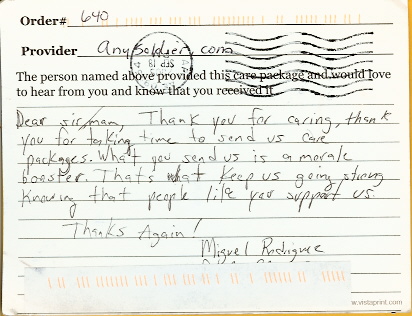 Order# 640
Provider AnySoldier.com
The person named above provided this care package and would love
to hear from you and know that you received it
Dear sir/mam, Thank you for caring, thank
you for taking time to send us care
packages. What you send us is a morale
booster. Thats what keep us going strong
knowing that people like you support us.
Thanks Again!
Miguel Rodriguez
www.vistaprint.com